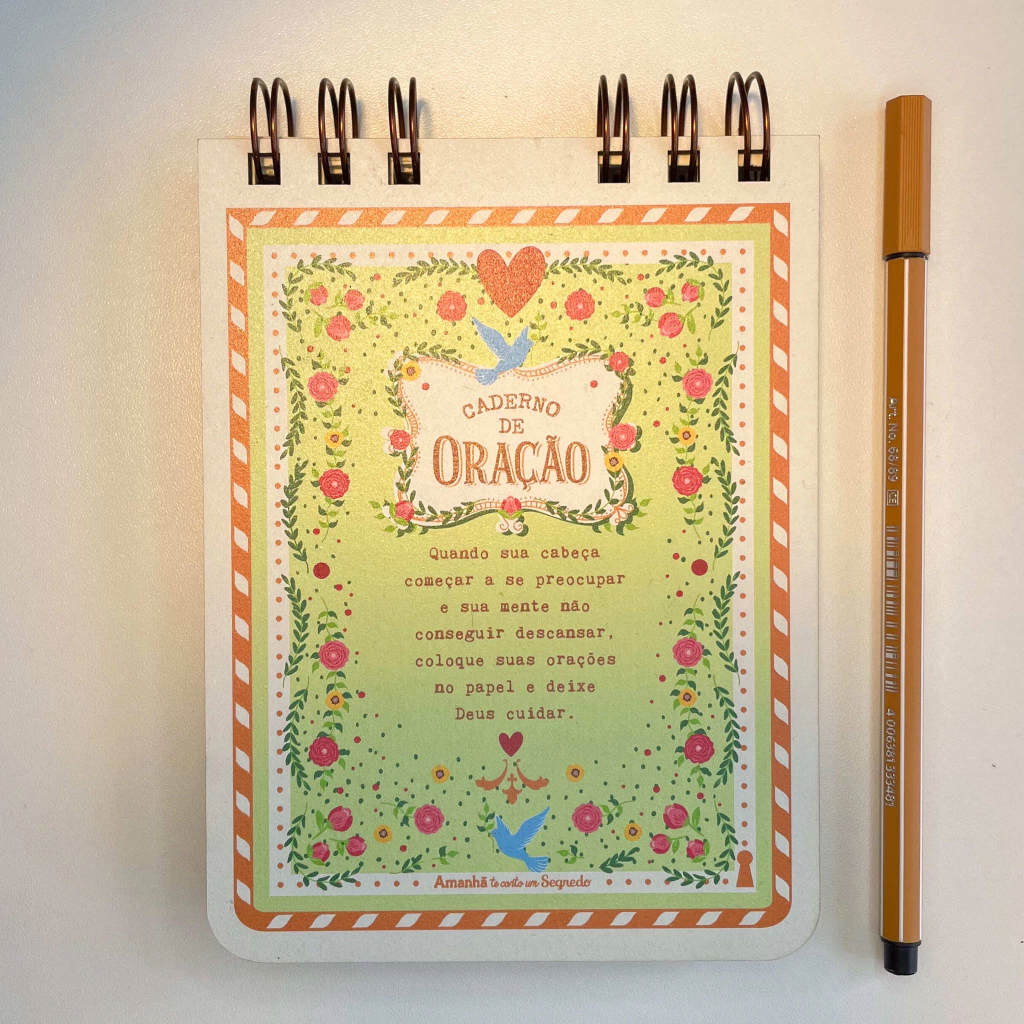 CADERNO
DE
ORAÇÃO
Quando sua cabeça
começar a se preocupar
e sua mente não
conseguir descansar,
coloque suas orações
no papel e deixe
Deus cuidar.
Amanhã te conto um Segredo
Art. No. 68/89 CE
4 006381 333481